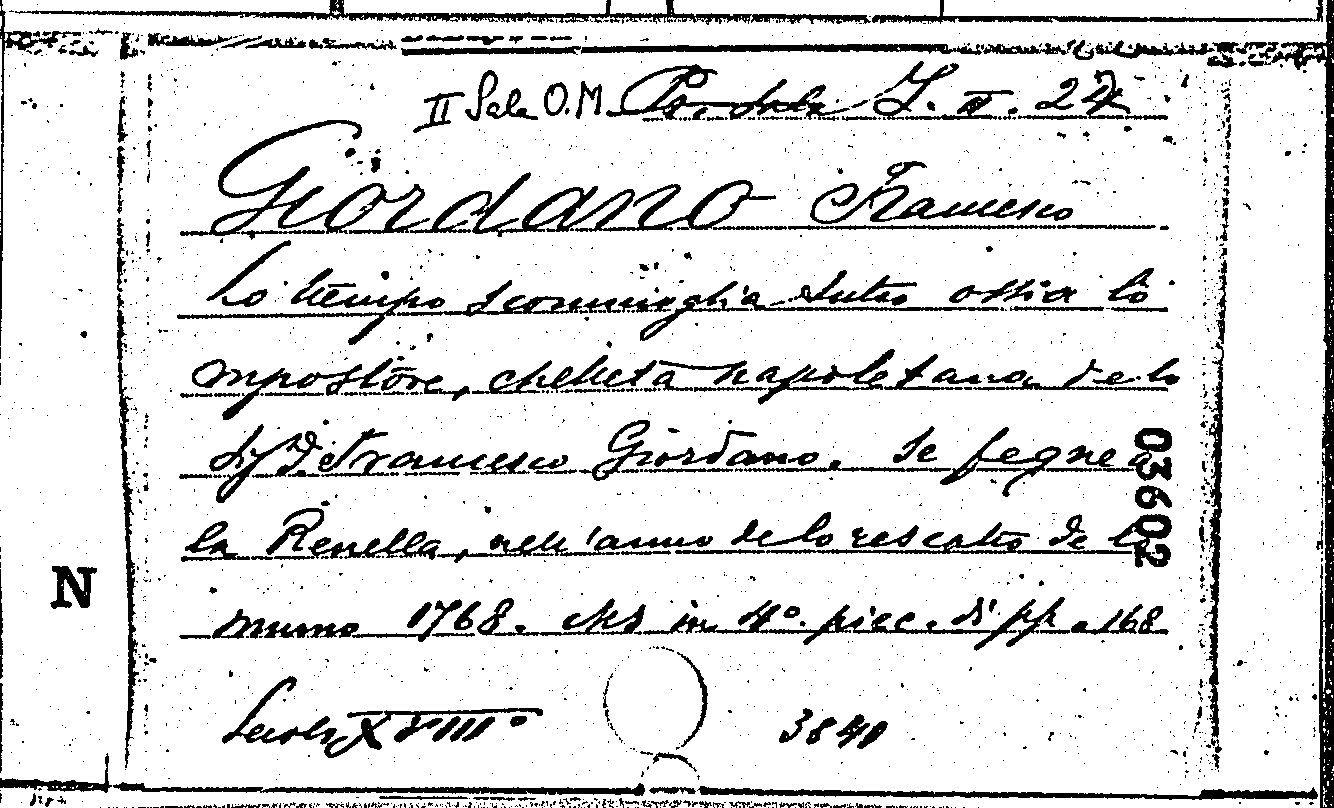 II Sala O.M. Po. Sala I. II. 27
Giordano Francesco
Lo tiempo scommoglia tutto ossia lo
mpostore, chelleta napoletana de lo
Sig. D. Francesco Giordano. Se fegne a
la Renella, nell'anno de lo rescatto de lo
munno 1768. Ms in 4°. picc. di pp. 168
Secolo XVIII°
3840
03602
N